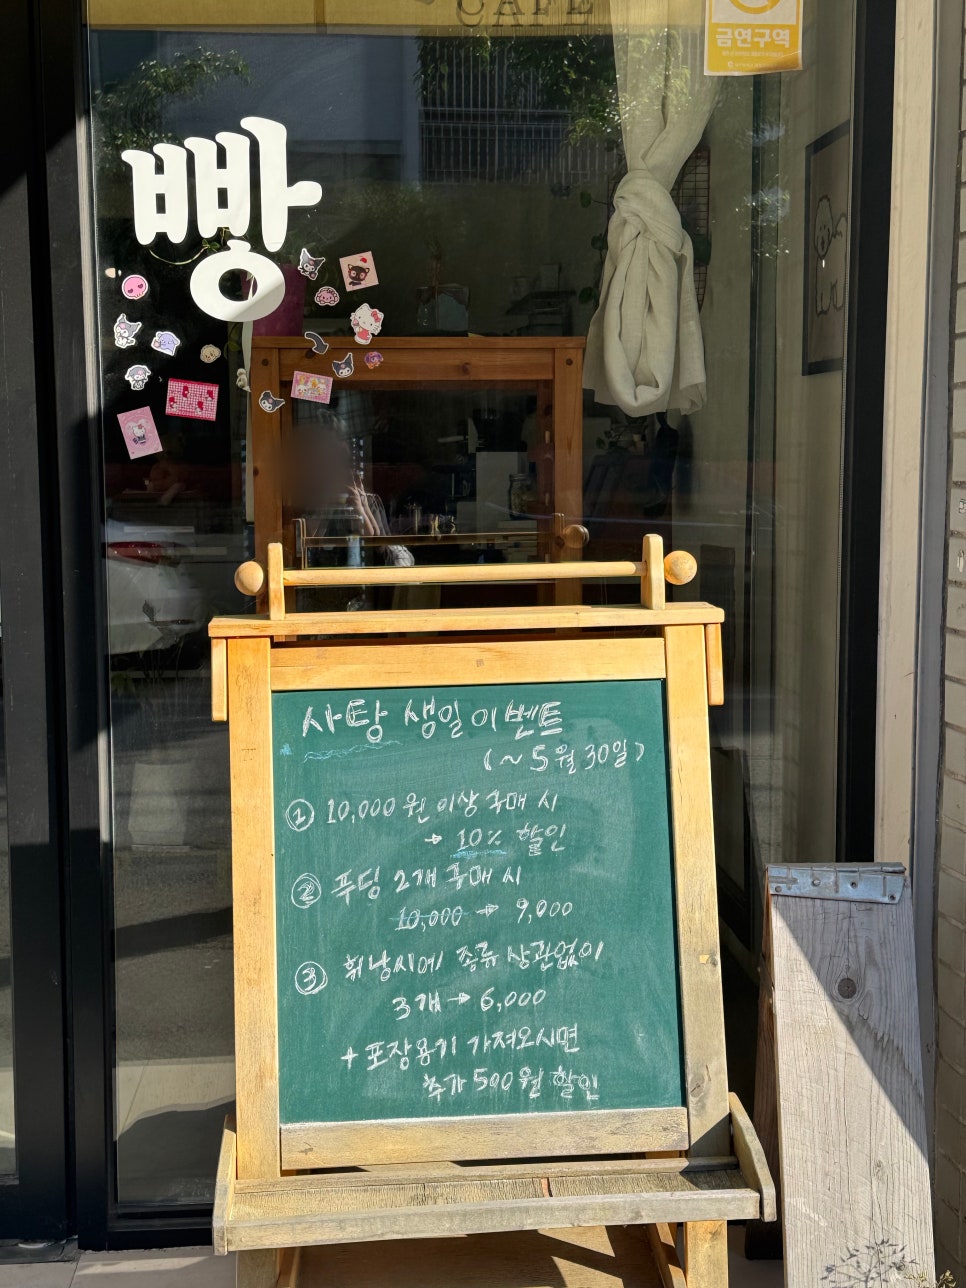 CAFE
금연구역
빵
사탕 생일 이벤트
(~5월 30일)
① 10,000원 이상 구매 시
→ 10% 할인
② 푸딩 2개 구매 시
10,000 → 9,000
③ 휘낭시에 종류 상관없이
3개 → 6,000
+ 포장용기 가져오시면
추가 500원 할인